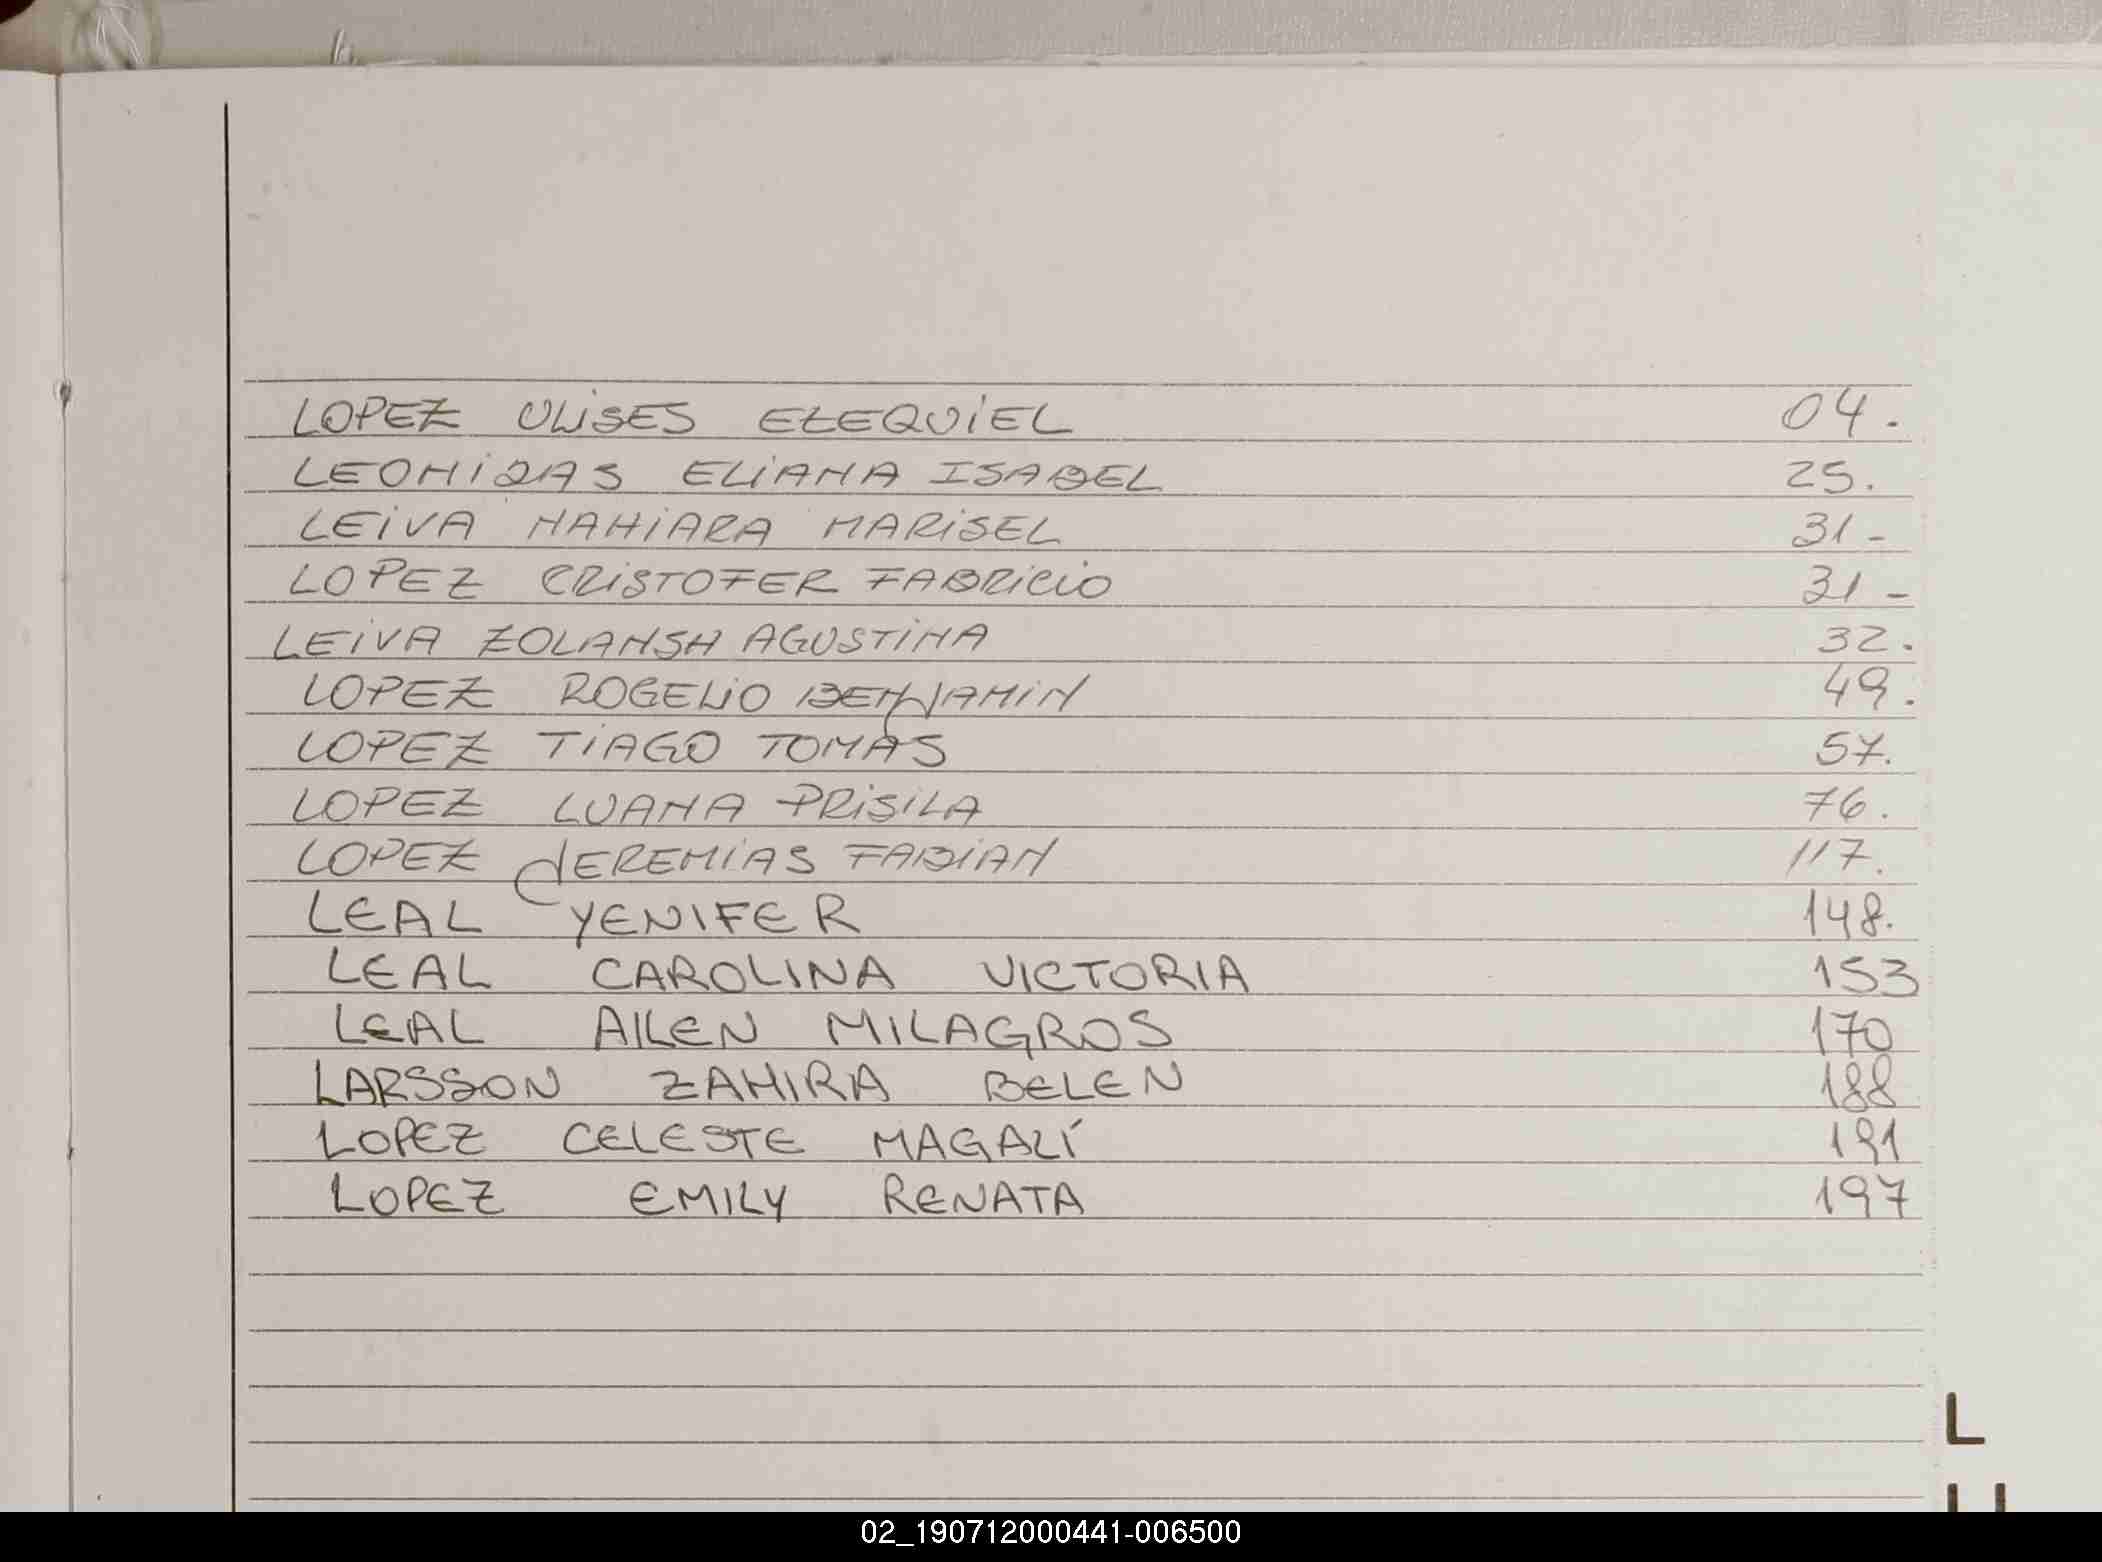 LOPEZ ULISES EZEQUIEL 04.
LEONIDAS ELIANA ISABEL 25.
LEIVA NAHIARA MARISEL 31-
LOPEZ CRISTOFER FABRICIO 31-
LEIVA ZOLANSH AGUSTINA 32.
LOPEZ ROGELIO BENJAMIN 49.
LOPEZ TIAGO TOMAS 57.
LOPEZ LUANA PRISILA 76.
LOPEZ JEREMIAS FABIAN 117.
LEAL YENIFER 148.
LEAL CAROLINA VICTORIA 153
LEAL AILEN MILAGROS 170
LARSSON ZAHIRA BELEN 188
LOPEZ CELESTE MAGALÍ 191
LOPEZ EMILY RENATA 197
L
02_190712000441-006500